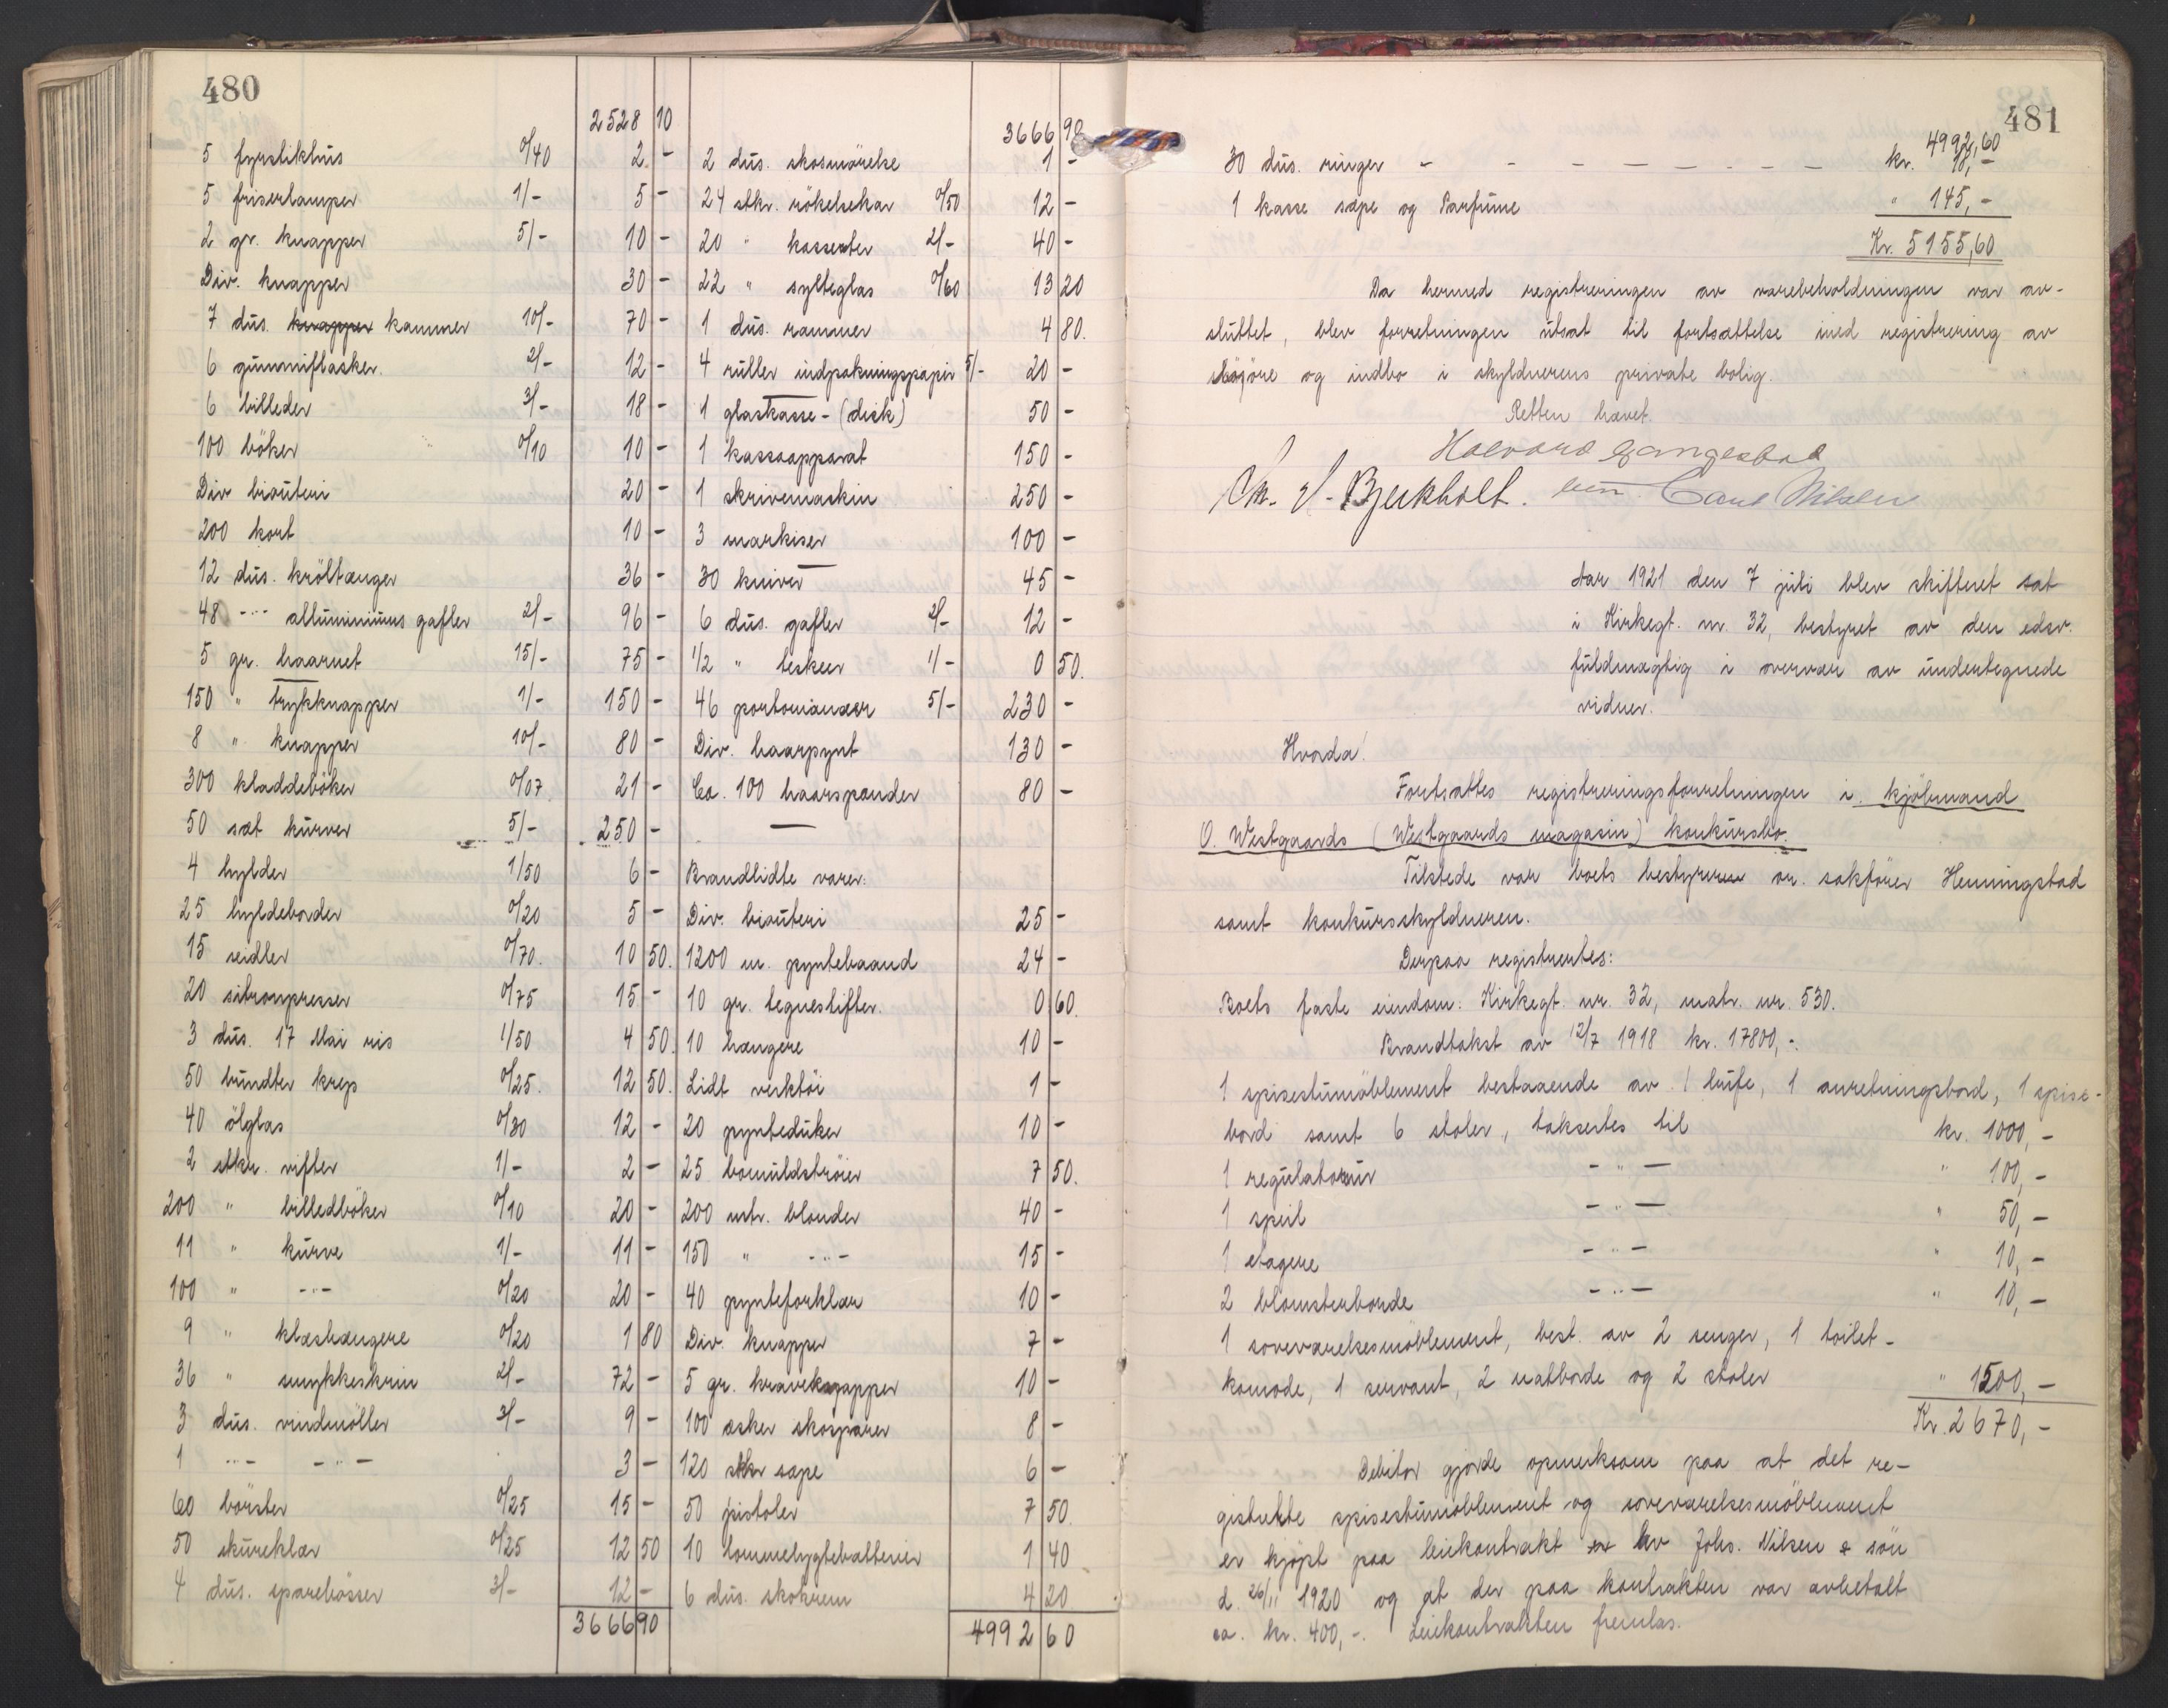 480
2528 10
5 fyrstikhus 0/40 2 -
5 friserlamper 1/- 5 -
2 gr. knapper 5/- 10 -
Div. knapper 30 -
7 dus. knapper kammer 10/- 70 -
6 gummiflasker. 2/- 12 -
6 billeder 3/- 18 -
100 böker 0/10 10 -
Div biouteri 20 -
200 kort 10 -
12 dus. kröltænger 36 -
48 -"- alluminiums gafler 2/- 96 -
5 gr. haarnet 15/- 75 -
150 " trykknapper 1/- 150 -
8 " knapper 10/- 80 -
300 kladdeböker 0/07 21 -
50 sæt kurver 5/- 250 -
4 hylder 1/50 6 -
25 hyldeborder 0/20 5 -
15 seidler 0/70. 10 50.
20 sitronpresser 0/75 15 -
3 dus. 17 Mai ris 1/50 4 50.
50 bundter krep 0/25. 12 50.
40 ölglas 0/30 12 -
2 stkr. rifler 1/- 2 -
200 " billedböker 0/10 20 -
11 " kurve 1/- 11 -
100 " -"- 0/20 20 -
9 " klæshængere 0/20 1 80
36 " smykkeskrin 2/- 72 -
3 dus. vindmöller 3/- 9 -
1 -"- -"- 3 -
60 börster 0/25 15 -
50 skureklær 0/25 12 50
4 dus. sparebösser 3/- 12 -
3666 90
3666 90
2 dus. skosmörelse 1 -
24 stkr. rökelsekar 0/50 12 -
20 " kasseroter 2/- 40 -
22 " sylteglas 0/60 13 20
1 dus. rammer 4 80.
4 ruller indpakningspapir 5/- 20 -
1 glaskasse - (disk) 50 -
1 kassaapparat 150 -
1 skrivemaskin 250 -
3 markiser 100 -
30 kniver 45 -
6 dus. gafler 2/- 12 -
1/2 " teskeer 1/- 0 50.
46 portomanæer 5/- 230 -
Div. haarpynt 130 -
Ca. 100 haarspænder 80 -
Brandlidte varer:
Div. biouteri 25 -
1200 m. pyntebaand 24 -
10 gr. tegnestifter. 0 60.
10 hængere 10 -
Lidt verktöi 1 -
20 pynteduker 10 -
25 bomuldströier 7 50.
200 mtr. blonder 40 -
150 " -"- 15 -
40 pynteforklær 10 -
Div. knapper 7 -
5 gr. kraveknapper 10 -
100 æsker skosparer 8 -
120 stkr sæpe 6 -
50 pistoler 7 50
10 lommelygtebatterier 1 40
6 dus. skokrem 4 20
4992 60
481
4992,60
30 dus. ringer - - - - - - - - kr. 18,-
1 kasse sæpe og Parfume " 145,-
Kr. 5155,60
Da hermed registreringen av varebeholdningen var av-
sluttet, blev forretningen utsat til fortsættelse med registrering av
lösöre og indbo i skyldnerens private bolig.
Retten hævet.
Ch. S. Bjerkholt. Carl Nilsen
Aar 1921 den 7 juli blev skifteret sat
i Kirkegt. nr. 32, bestyret av den edsv.
fuldmægtig i overvær av undertegnede
vidner.
Hvorda!
Fortsattes registreringsforretningen i kjöbmand
O. Westgaards (Westgaards magasin) konkursbo.
Tilstede var boets bestyrer or. sakförer Henningstad
samt konkursskyldneren.
Derpaa registrertes:
Boets faste eiendom: Kirkegt. nr. 32, matr. nr. 530.
Brandtakst av 12/7 1918 kr. 17800,-.
1 spisestumöblement bestaaende av 1 buffe, 1 anretningsbord, 1 spise-
bord samt 6 stoler, taksertes til kr. 1000,-
1 regulatorur -"- " 100,-
1 speil -"- " 50,-
1 etagere -"- " 10,-
2 blomsterborde -"- " 10,-
1 soveværelsesmöblement, best. av 2 senger, 1 toilet-
komode, 1 servant, 2 natborde og 2 stoler " 1500,-
Kr. 2670,-
Debitor gjorde opmerksom paa at det re-
gistrerte spisestumöblement og soveværelsesmöblement
er kjöpt paa leiekontrakt av Johs. Nilsen & sön
d. 26/11 1920 og at der paa kontrakten var avbetalt
ca. kr. 400,-. Leiekontrakten fremlas.